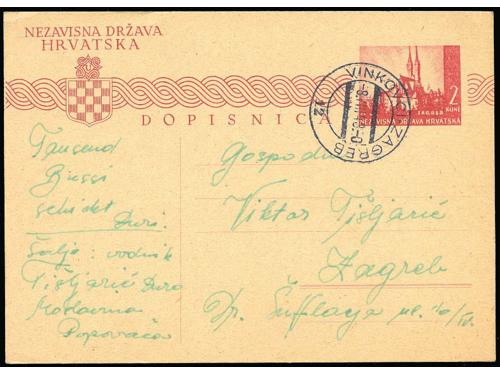 NEZAVISNA DRŽAVA
HRVATSKA
DOPISNICA
ZAGREB
2
KUNE
NEZAVISNA DRŽAVA HRVATSKA
VINKOVCI ZAGREB
Tausend
Bussi
schickt
Đuri.
Šalje: vodnik
Tišljarić Đuro
Moslavina
Popovača
Gospodin
Viktor Tišljarić
Zagreb
Dr. Šufflaja ul. 10/IV.